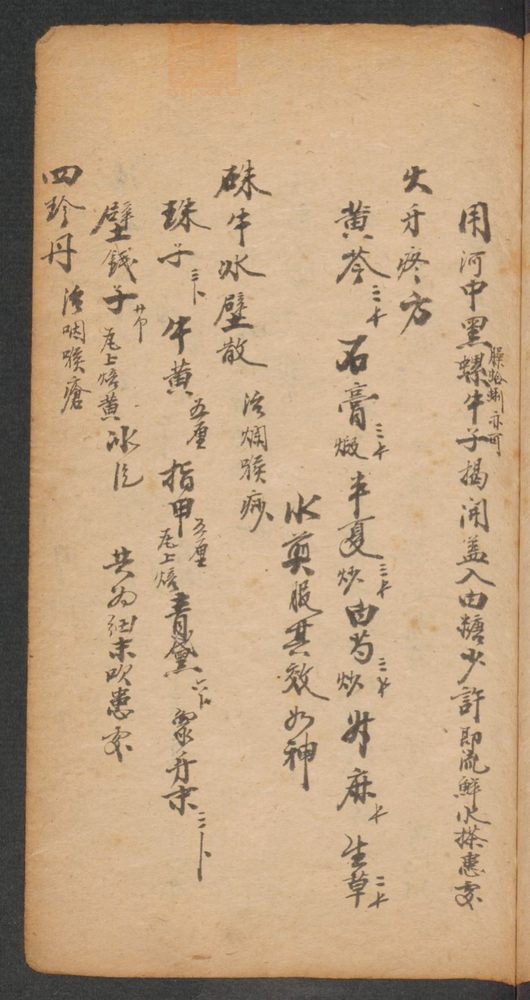 用河中黑螺牛子揭開盖入白糖少許即流鮮水搽患処
螺蛤蜊亦可
火牙疼方
黄芩三十 石膏煅三十 半夏炒三十 白芍炒三十 升麻十 生草二十
水煎服其效如神
硃牛冰壁散 治烂喉痧
珠子三卜 牛黄五厘 指甲五厘瓦上焙 青黛六卜 象牙末三卜
壁錢子廿个瓦上焙黄 冰片 共为细末吹患处
四珍丹 治咽喉瘡